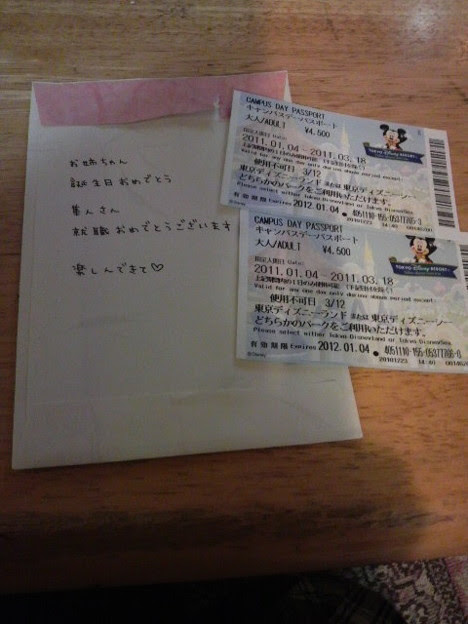 お姉ちゃん
誕生日おめでとう
隼人さん
就職おめでとうございます
楽しんできて♡
CAMPUS DAY PASSPORT
キャンパスデーパスポート
大人/ADULT ¥4,500
2011.01.04-2011.03.18
Valid for any one day only during above period except.
使用不可日 3/12
東京ディズニーランド または 東京ディズニーシー
どちらかのパークをご利用いただけます。
Please select either Tokyo Disneyland or Tokyo DisneySea.
有効期限 Expires 2012.01.04
TOKYO Disney RESORT
CAMPUS DAY PASSPORT
キャンパスデーパスポート
大人/ADULT ¥4,500
2011.01.04-2011.03.18
Valid for any one day only during above period except.
使用不可日 3/12
東京ディズニーランド または 東京ディズニーシー
どちらかのパークをご利用いただけます。
Please select either Tokyo Disneyland or Tokyo DisneySea.
有効期限 Expires 2012.01.04
20101223 14:40
TOKYO Disney RESORT
©Disney